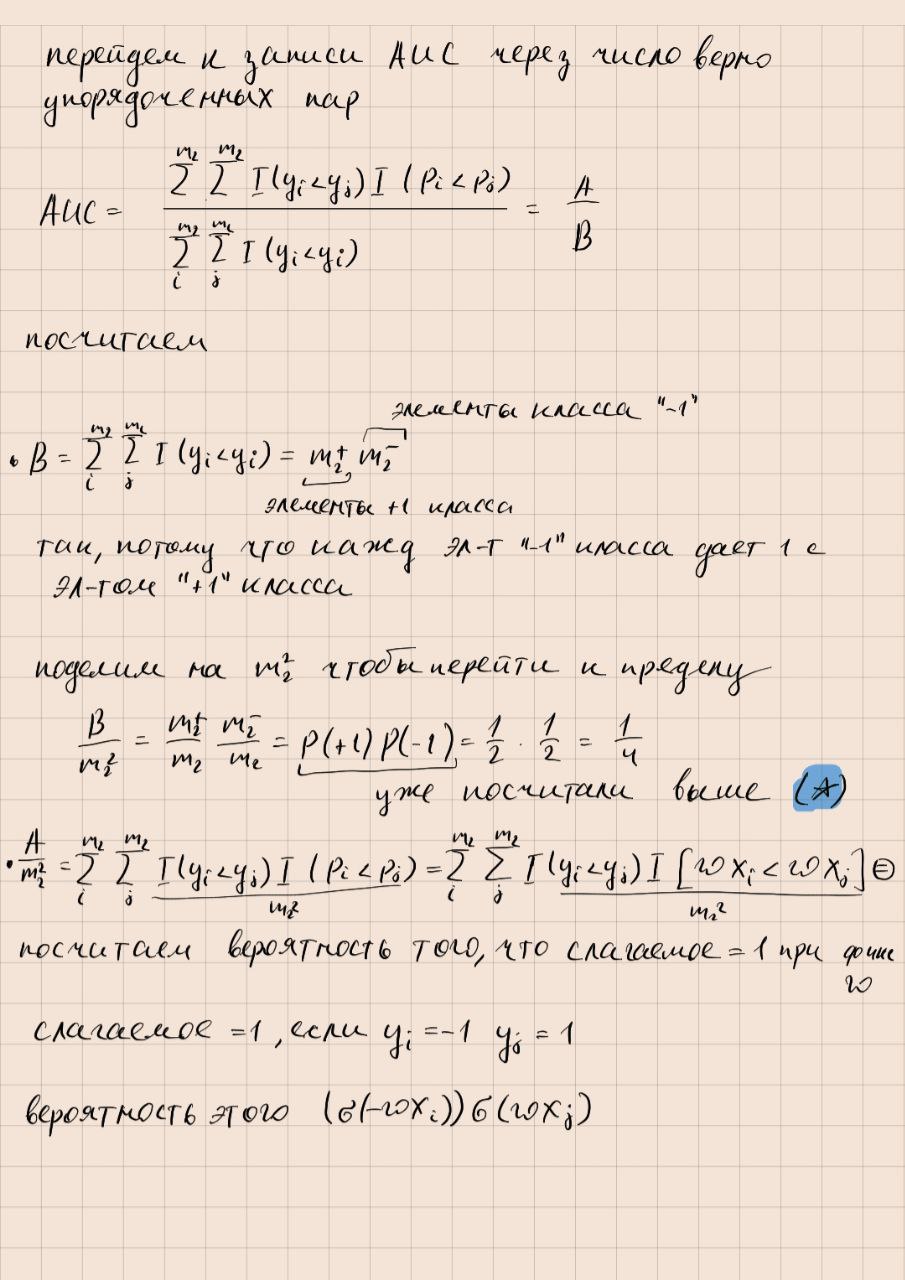 перейдем к записи AUC через число верно
упорядоченных пар
AUC = \frac{\sum_{i}^{m_2} \sum^{m_2} I(y_i < y_j) I(p_i < p_j)}{\sum_i^{m_2} \sum_j^{m_2} I(y_i < y_j)} = \frac{A}{B}
посчитаем
элементы класса "-1"
• B = \sum_i^{m_2} \sum_j^{m_2} I(y_i < y_j) = m_2^+ m_2^-
элементы +1 класса
так, потому что кажд эл-т "-1" класса дает 1 с
эл-том "+1" класса
поделим на m_2^2 чтобы перейти к пределу
\frac{B}{m_2^2} = \frac{m_2^+}{m_2} \frac{m_2^-}{m_2} = P(+1) P(-1) = \frac{1}{2} \cdot \frac{1}{2} = \frac{1}{4}
уже посчитали выше (☆)
• \frac{A}{m_2^2} = \sum_i^{m_2} \sum_j^{m_2} \frac{I(y_i < y_j) I(p_i < p_j)}{m_2^2} = \sum_i^{m_2} \sum_j^{m_2} \frac{I(y_i < y_j) I[w x_i < w x_j]}{m_2^2} ⊜
посчитаем вероятность того, что слагаемое = 1 при фикс
w
слагаемое = 1, если y_i = -1 y_j = 1
вероятность этого (σ(-w x_i)) σ(w x_j)